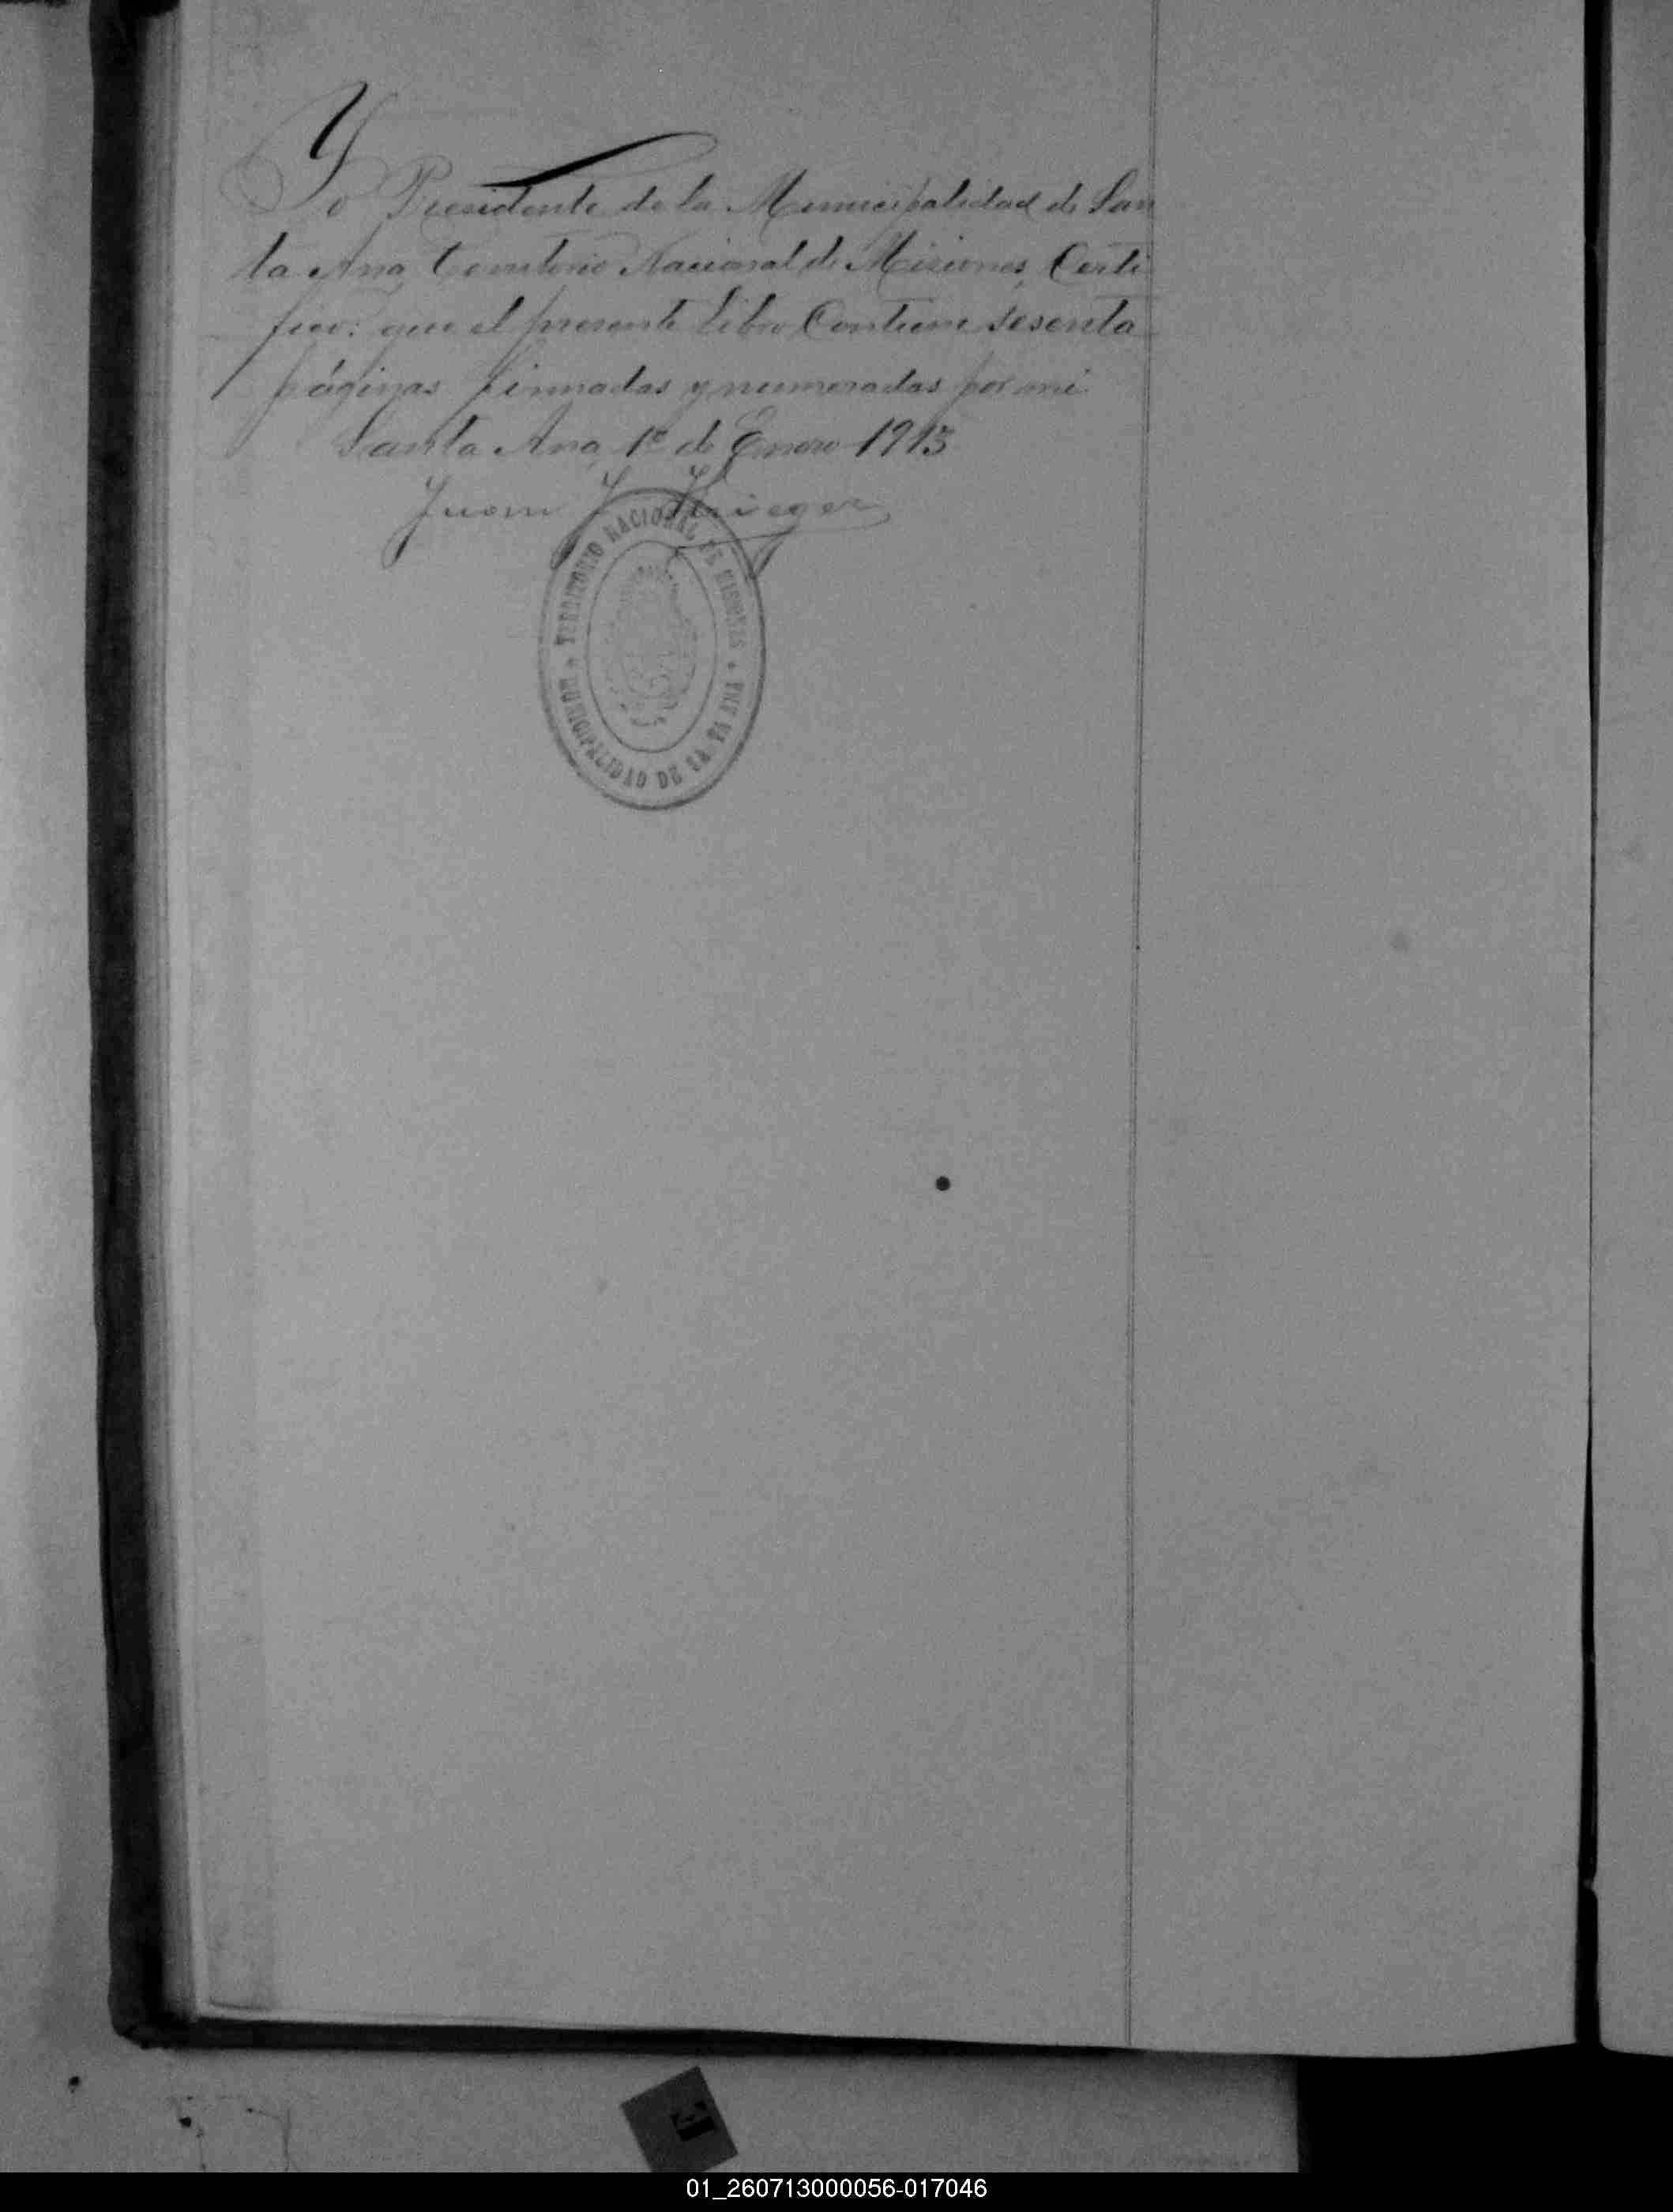 Yo Presidente de la Municipalidad de San
ta Ana Territorio Nacional de Misiones, Certi
fico: que el presente libro Contiene sesenta
páginas firmadas y numeradas por mi
Santa Ana, 1º de Enero 1915
Juan J. Krieger
TERRITORIO NACIONAL DE MISIONES
MUNICIPALIDAD DE SANTA ANA
01_260713000056-017046